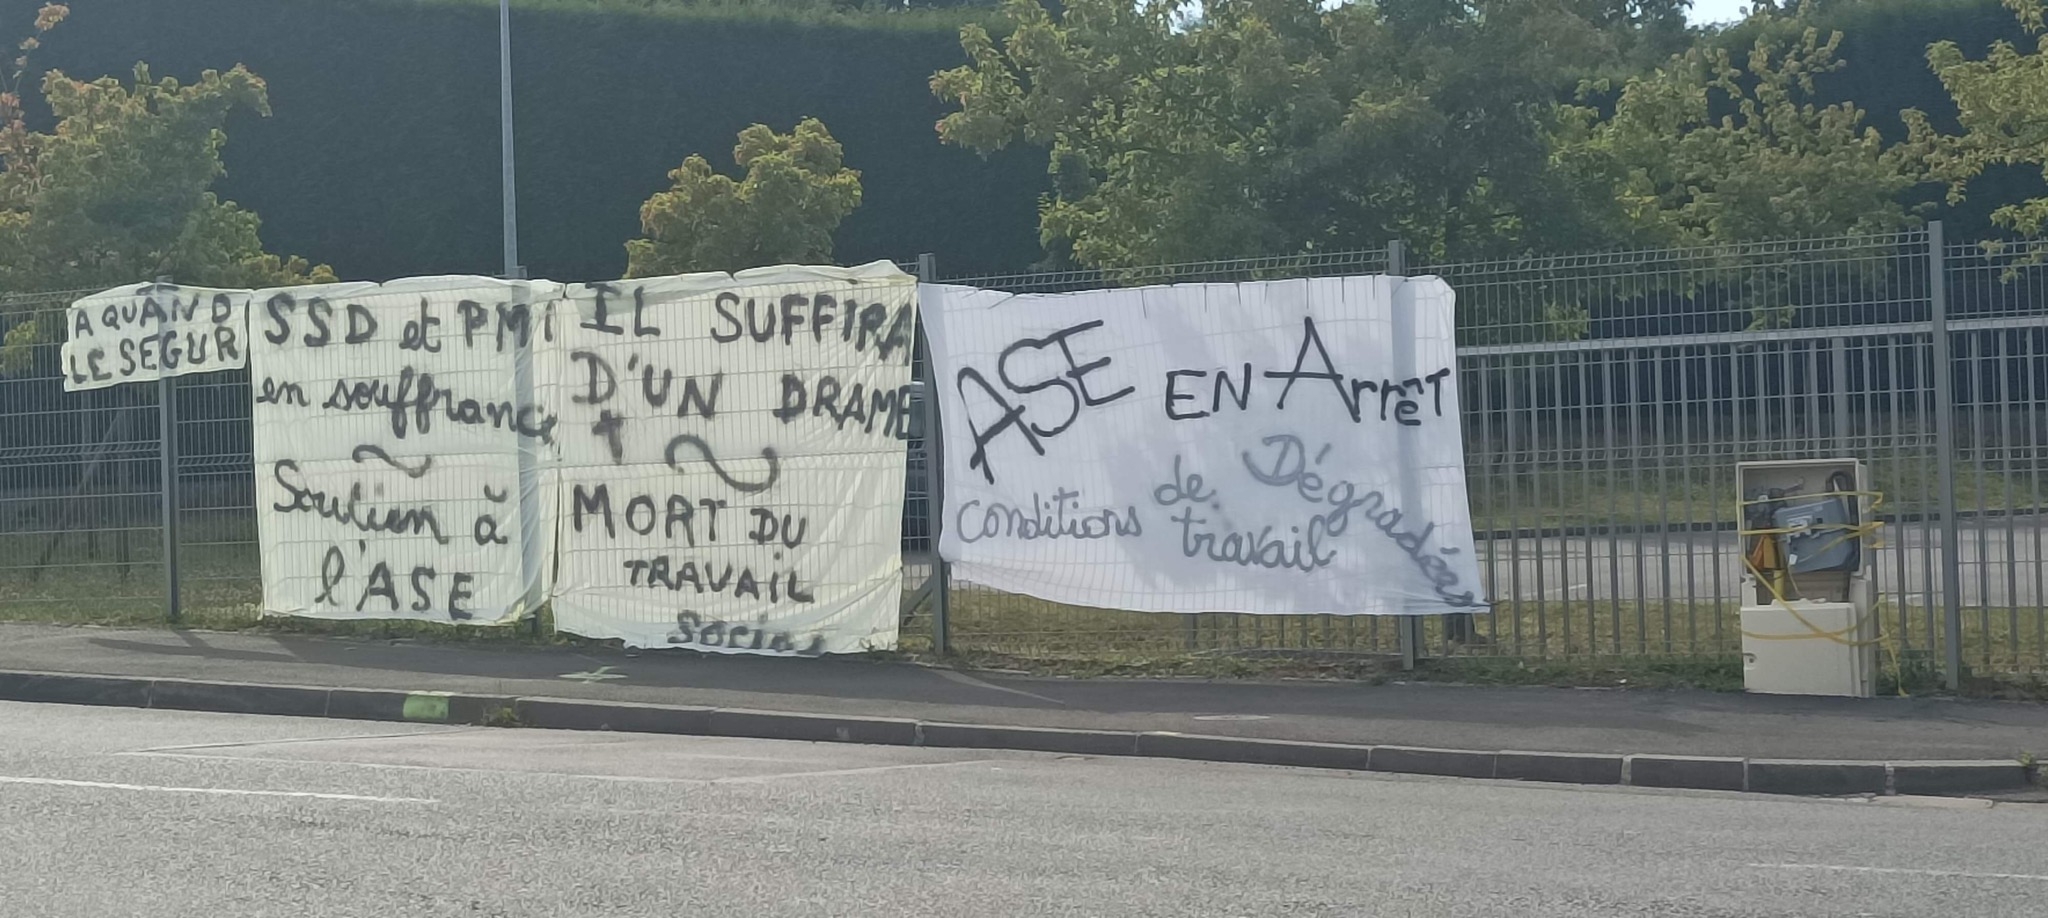 A QUAND
LE SEGUR
SSD et PMI
en souffrance
~
Soutien à
l'ASE
IL SUFFIRA
D'UN DRAME
† ~
MORT DU
TRAVAIL
Social
ASE EN ArrêT
Conditions de travail Dégradées